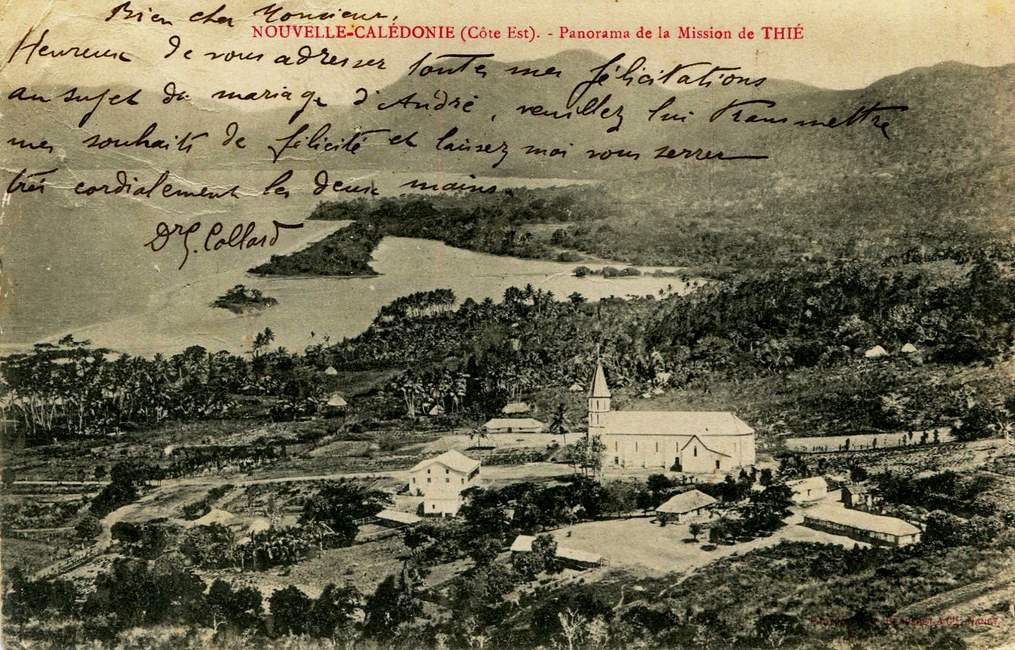 Bien cher Monsieur,
NOUVELLE-CALÉDONIE (Côte Est). - Panorama de la Mission de THIÉ
Heureux de vous adresser toutes mes félicitations
au sujet du mariage d'André, veuillez lui transmettre
mes souhaits de félicité et laissez moi vous serrer
très cordialement les deux mains.
Dr G. Collard
NANCY